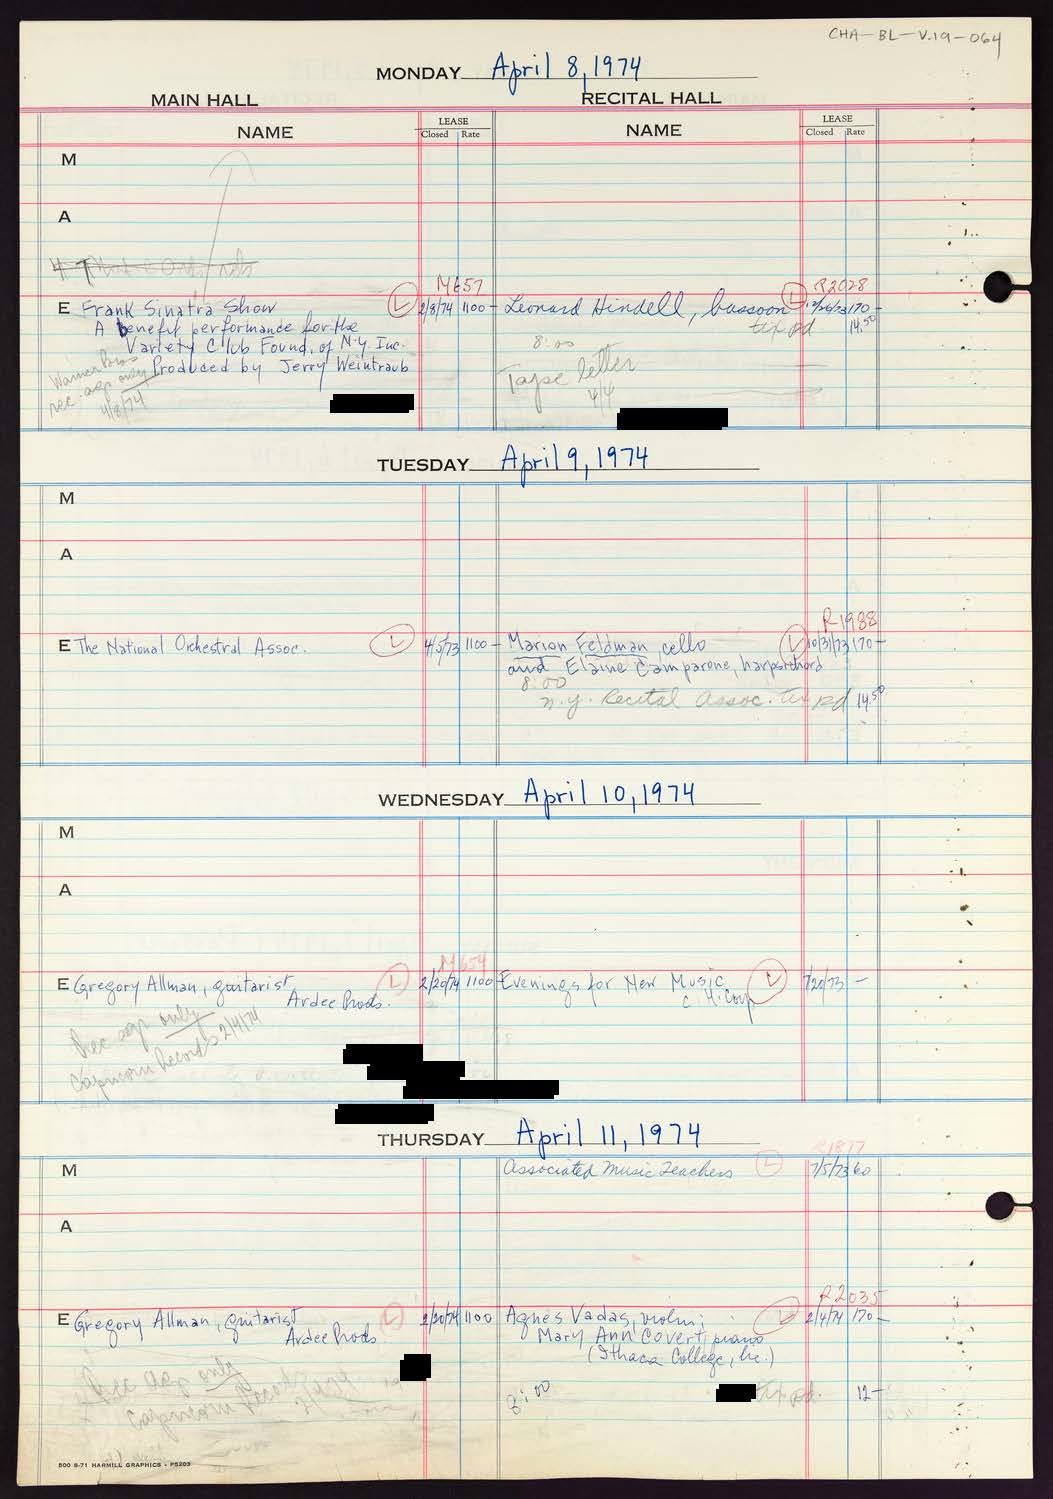 CHA-BL-V.19-064
MONDAY April 8, 1974
MAIN HALL RECITAL HALL
NAME LEASE Closed Rate NAME LEASE Closed Rate
M
A
M657 R2028
E Frank Sinatra Show L 2/8/74 1100- Leonard Hindell, bassoon L 12/26/73 170-
A benefit performance for the tix pd 14.50
Variety Club Found, of N.Y. Inc. 8:00
Produced by Jerry Weintraub Tape letter
Warner Bros 4/4
rec. agp only
4/8/74
TUESDAY April 9, 1974
M
A
R-1988
E The National Orchestral Assoc. L 4/5/73 1100- Marion Feldman, cello L 10/31/73 170-
and Elaine Comparone, harpsichord
8:00
N.Y. Recital Assoc. tix pd 14.50
WEDNESDAY April 10, 1974
M
A
M654
E Gregory Allman, guitarist L 2/20/74 1100 Evenings for New Music L 7/20/73 -
Ardee Prods. C.H. Corp
Rec agp only
Capricorn Records 2/4/74
THURSDAY April 11, 1974
R1877
M Associated Music Teachers L 7/5/73 60
A
R2035
E Gregory Allman, guitarist L 2/20/74 1100 Agnes Vadas, violin; L 2/4/74 170-
Ardee Prods. Mary Ann Covert, piano
(Ithaca College, Inc.)
Rec agp only
Capricorn Records
8:00 tix pd. 12-
500 8-71 HARMILL GRAPHICS - P5203